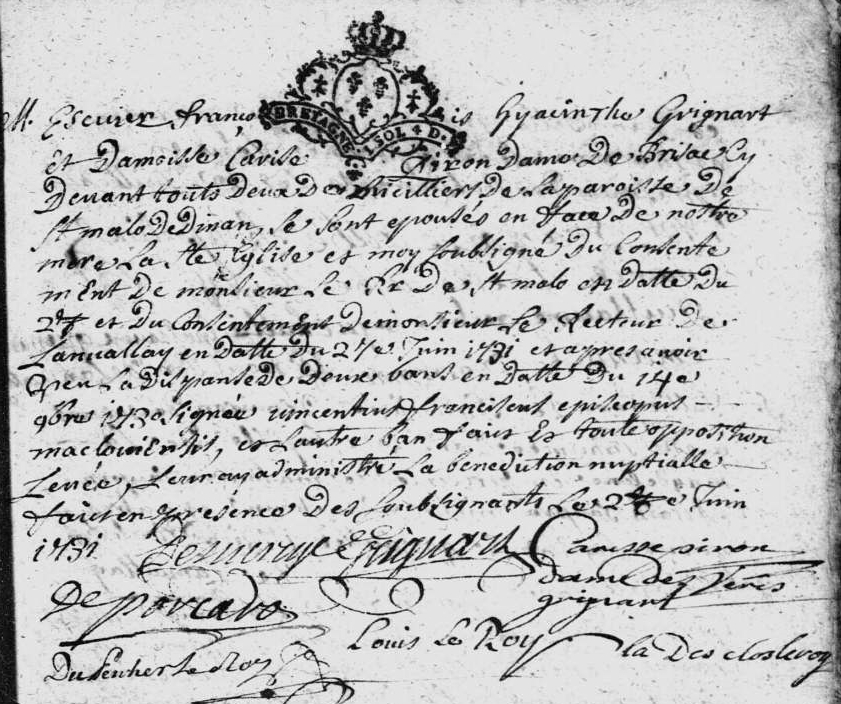 M. Escuier françois Hyacinthe Grignart
BRETAGNE 1 SOL 4 D.
Et Damoisse Carise Piron Dame De Brisac Cy
Devant touts Deux De La paroisse De
St malo De Dinan, se sont epousés en face De nostre
mere La Ste Eglise et moy soubsigné Du Consente
ment De monsieur Le Rr De St malo en Datte Du
et Du Consentement De monsieur Le Recteur De
Lanvallay en Datte Du 27e Juin 1731 et apres avoir
veu La Dispanse De Deux bans en Datte Du 14e
9bre 1730 signée vincentius franciscus episcopus
macloviensis, et L'autre ban faict Et toute opposition
Levée, Leur ay administré La benediction nuptialle
faict en presence Des soubsignants Le Juin
1731 Grignart Carisse piron
dame des
De porcaro grignart
Louis Le Roy la Des clos leroy
Le Roy